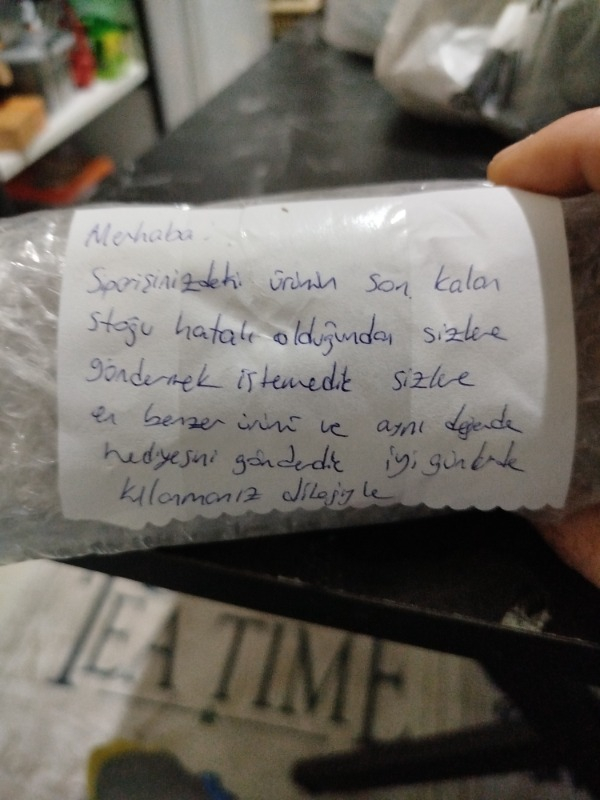 Merhaba.
Sparişinizdeki ürünün son kalan
stoğu hatalı olduğundan sizlere
göndermek istemedik sizlere
en benzer ürünü ve aynı değerde
hediyesini gönderdik iyi günlerde
kullanmanız dileğiyle
TEA TIME